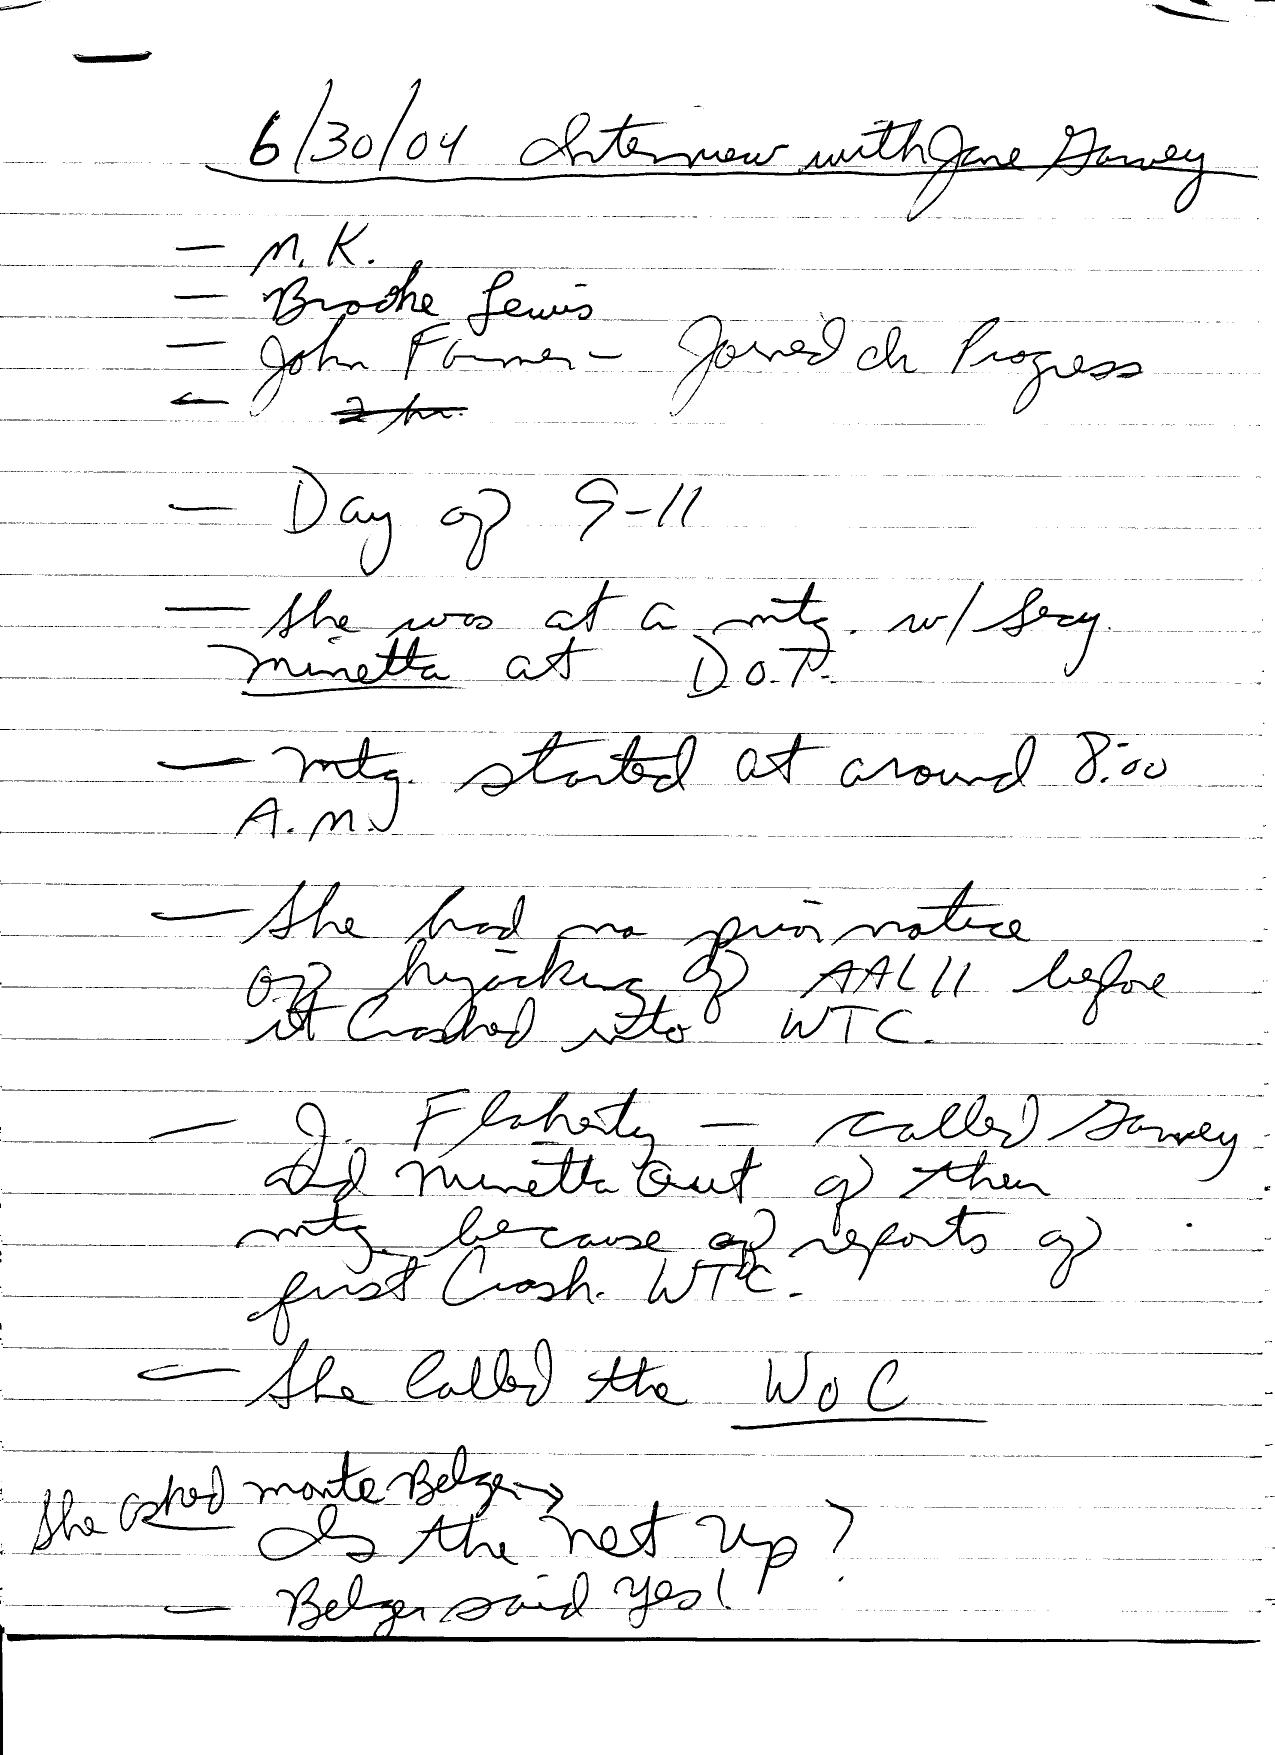 6/30/04 Interview with Jane Garvey
— M.K.
— Brooke Lewis
— John Farmer – Joined in Progress
— 2 hr.
— Day of 9-11
— She was at a mtg. w/ Secy.
Minetta at D.O.T.
— Mtg. started at around 8:00
A.M.
— She had no prior notice
of hijacking of AAL 11 before
it Crashed into WTC.
— J. Flaherty — called Garvey
and Minetta out of their
mtg. because of reports of
first Crash. WTC.
— She Called the WOC
She asked Monte Belger →
Is the net up?
— Belger said yes!